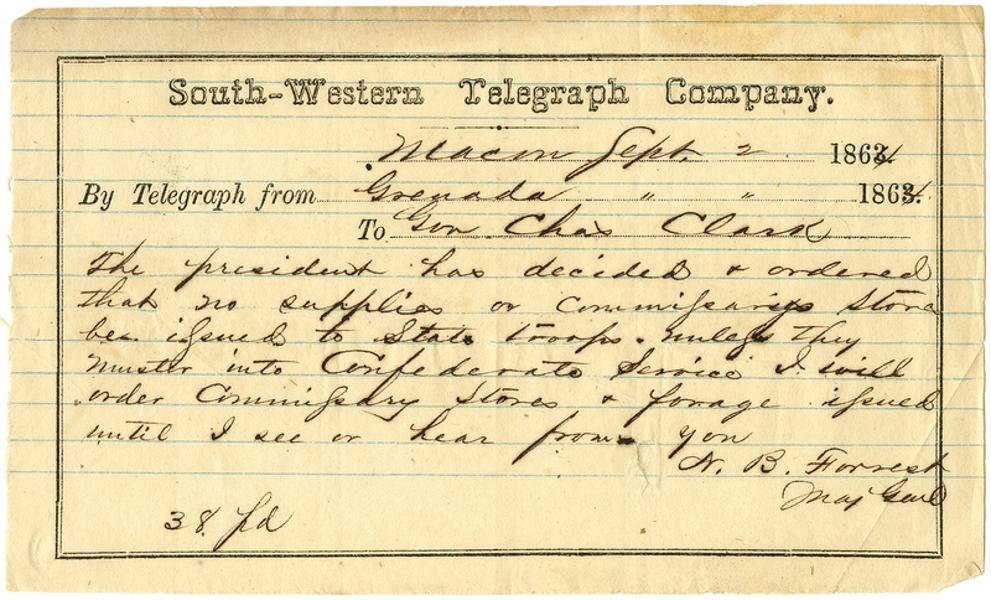 South-Western Telegraph Company.
Macon Sept. 2 1864
By Telegraph from Grenada " " 1864.
To Gov Chas Clark
The president has decided & ordered
that no supplies or commissarys stores
be issued to State troops. unless they
muster into Confederate Service I will
order Commissary Stores & forage issued
until I see or hear from you
N. B. Forrest
Maj Genl
38 pd